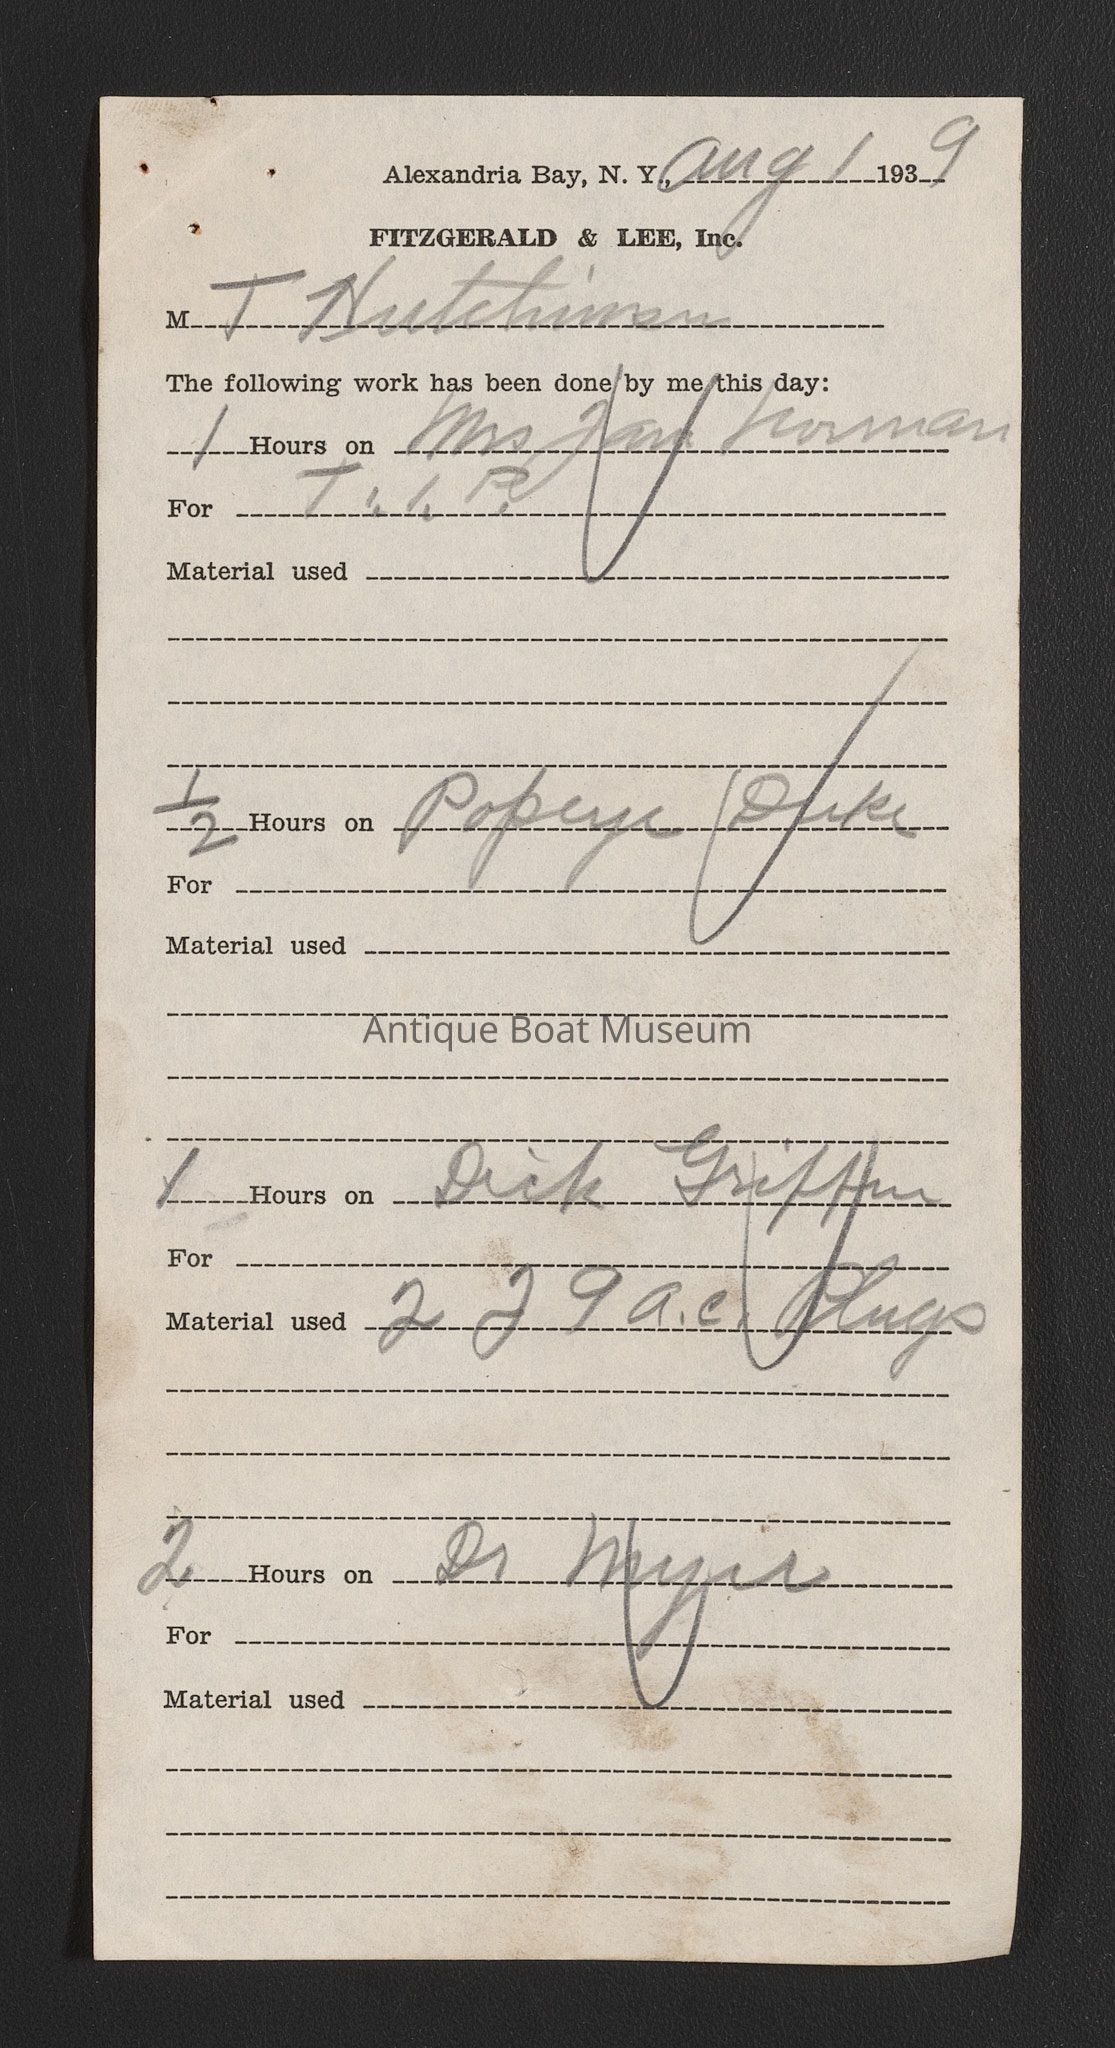 Alexandria Bay, N. Y., Aug 1 1939
FITZGERALD & LEE, Inc.
M T Hutchinson
The following work has been done by me this day:
1 Hours on Mrs Norman
For T. I. P.
Material used
1/2 Hours on Popeye Duke
For
Material used
Antique Boat Museum
1 Hours on Dick Griffin
For
Material used 2 29 a.c. Plugs
2 Hours on Dr Myers
For
Material used